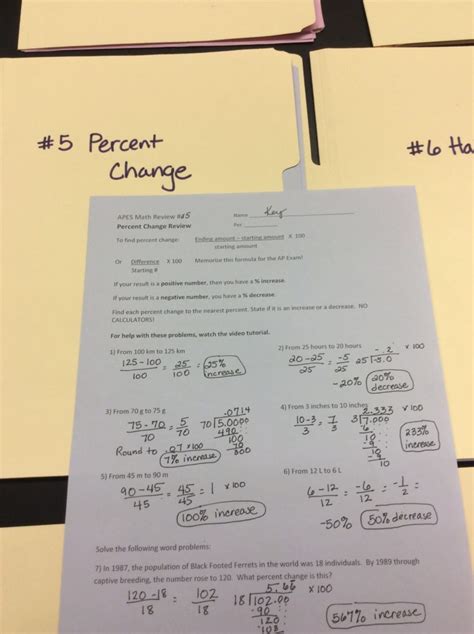 #5 Percent
Change
#6 Ha
APES Math Review #5
Name Key
Percent Change Review
Per
To find percent change: Ending amount – starting amount X 100
starting amount
Or Difference X 100 Memorize this formula for the AP Exam!
Starting #
If your result is a positive number, then you have a % increase.
If your result is a negative number, you have a % decrease.
Find each percent change to the nearest percent. State if it is an increase or a decrease. NO
CALCULATORS!
For help with these problems, watch the video tutorial.
1) From 100 km to 125 km
125-100 / 100 = 25 / 100 = 25% increase
2) From 25 hours to 20 hours
20-25 / 25 = -5 / 25 25)-5.0 -.2 x 100
-20% 20% decrease
3) From 70 g to 75 g
75-70 / 70 = 5 / 70 70)5.0000 .0714
490
100
70
300
Round to .07 x100
7% increase
4) From 3 inches to 10 inches
10-3 / 3 = 7 / 3 3)7.000 2.333 x 100
6
10
9
10
9
10
233% increase
5) From 45 m to 90 m
90-45 / 45 = 45 / 45 = 1 x 100
100% increase
6) From 12 L to 6 L
6-12 / 12 = -6 / 12 = -1 / 2 =
-50% 50% decrease
Solve the following word problems:
7) In 1987, the population of Black Footed Ferrets in the world was 18 individuals. By 1989 through
captive breeding, the number rose to 120. What percent change is this?
120-18 / 18 = 102 / 18 18)102.00 5.66 x 100
90
120
108
567% increase